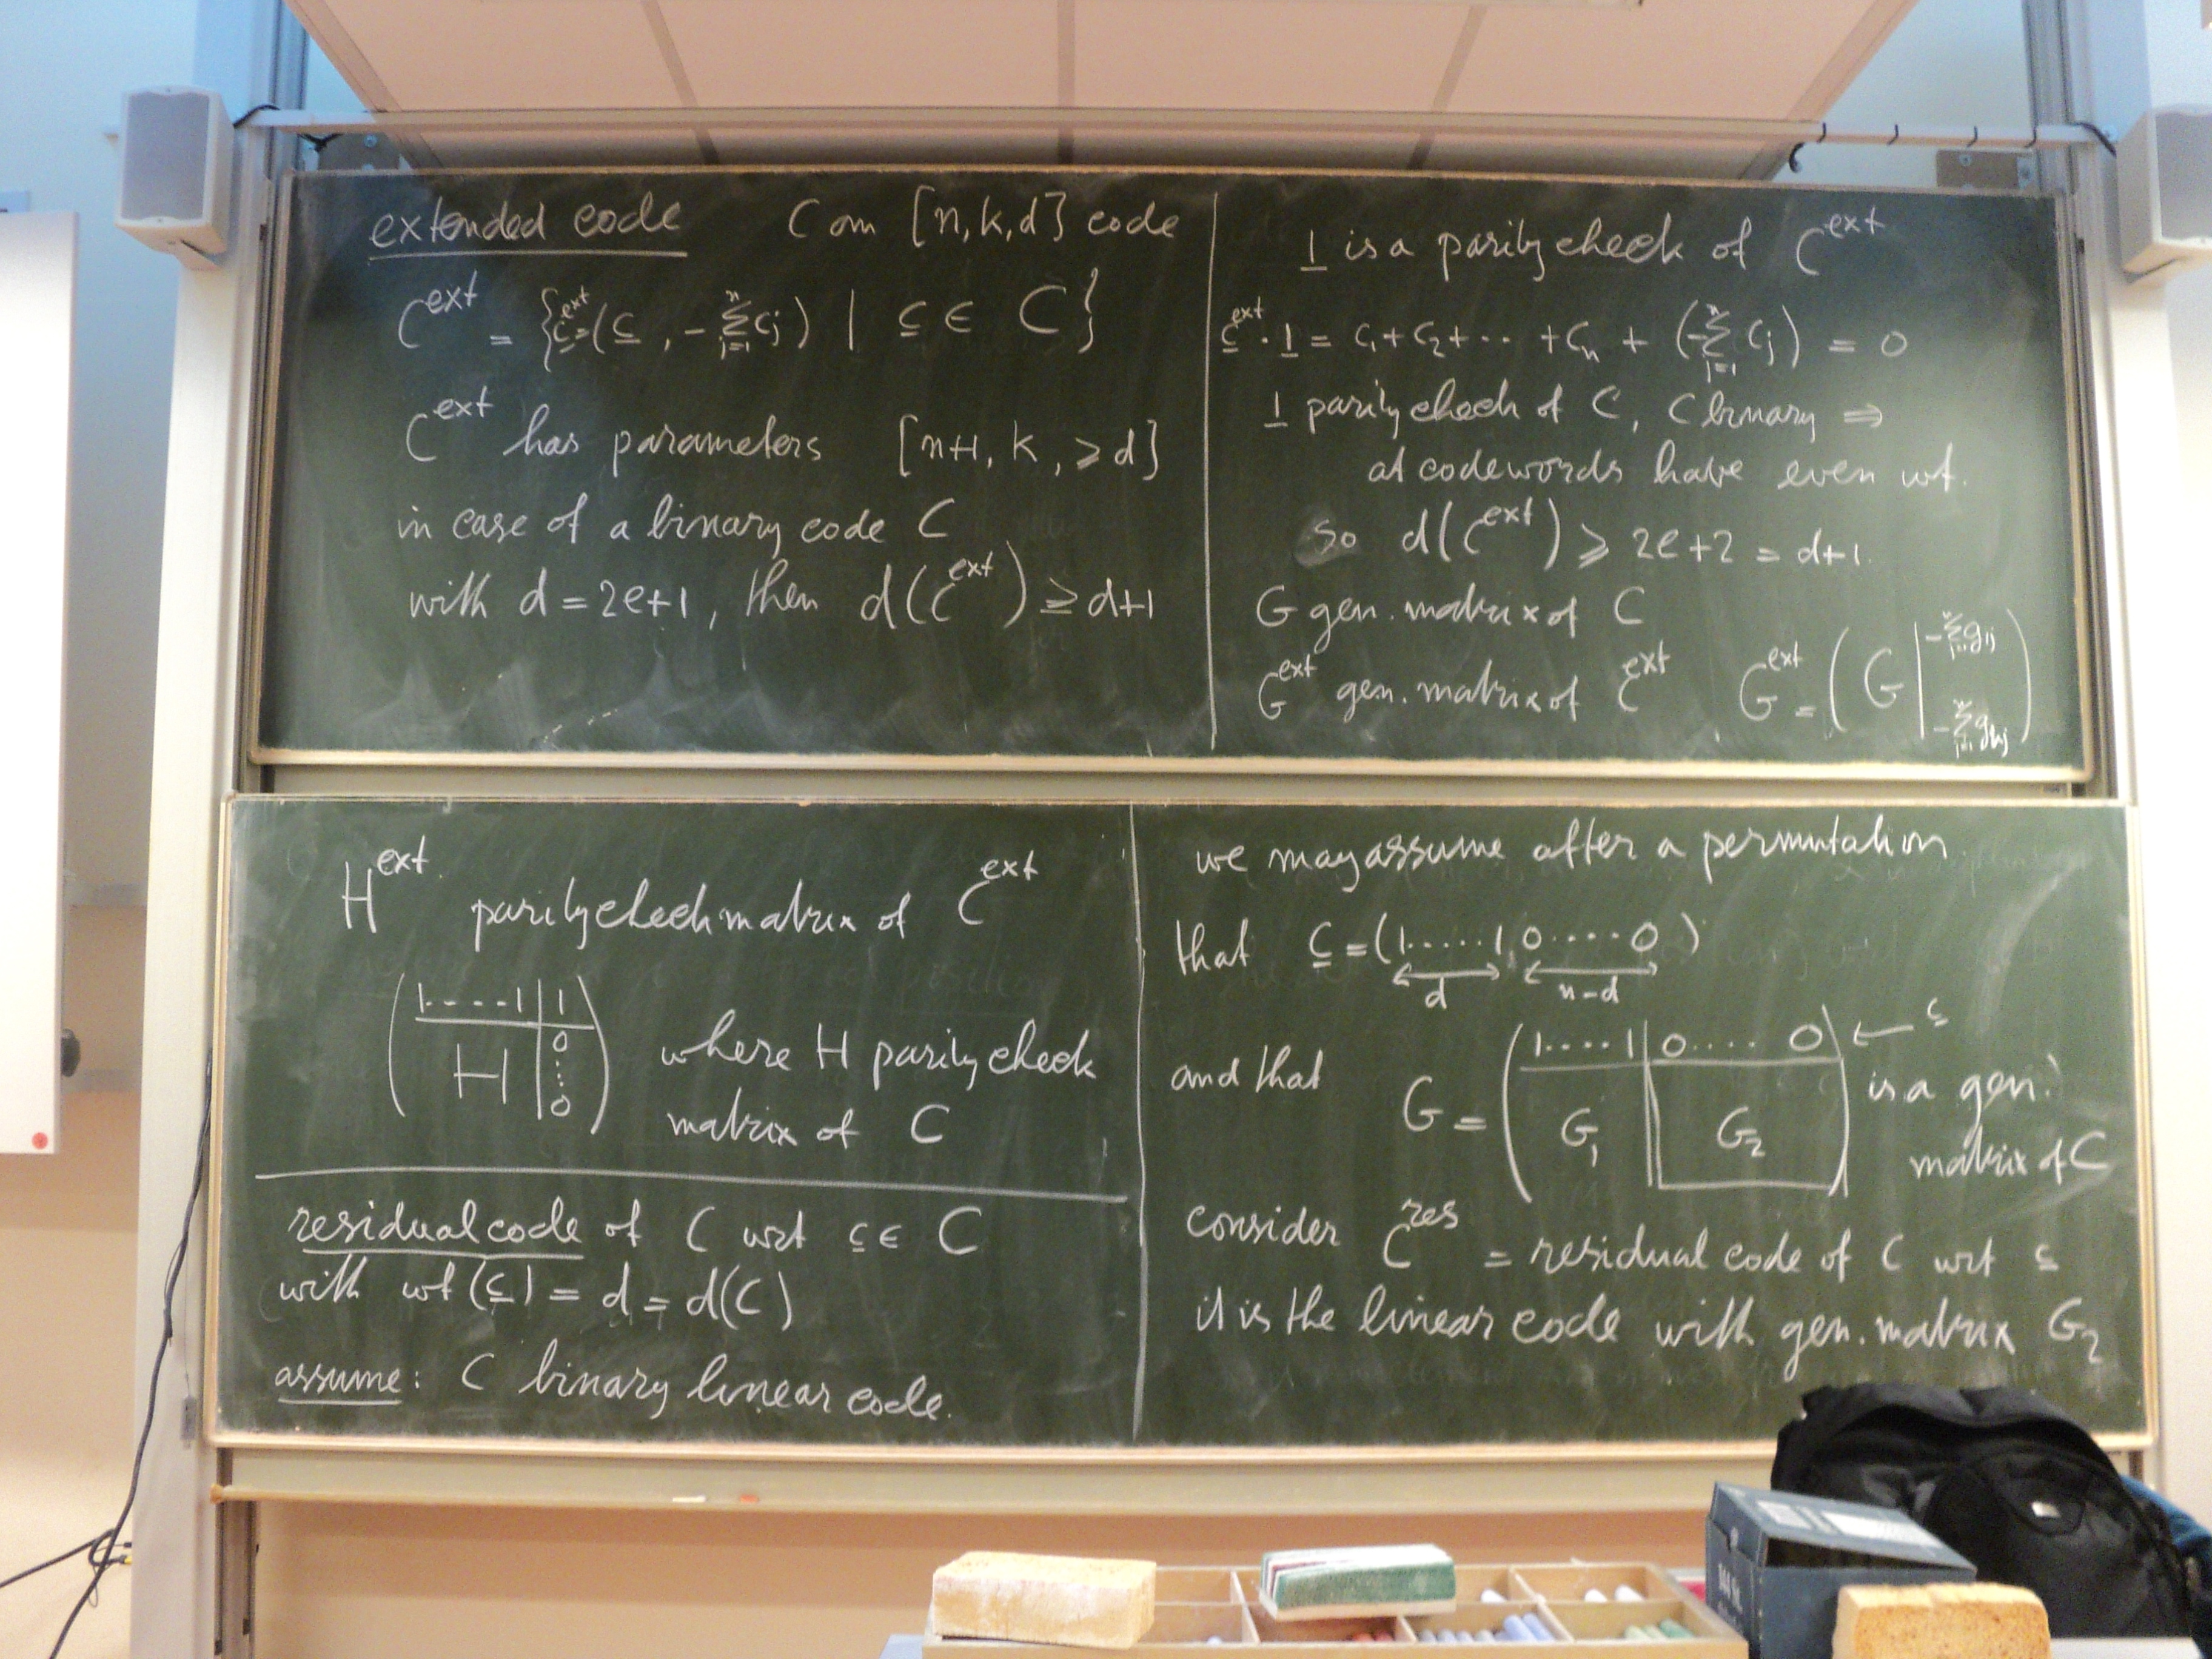 extended code C an [n,k,d] code
C^ext = {c^ext=(c, -∑_{j=1}^n c_j) | c ∈ C}
C^ext has parameters [n+1, k, ⩾d]
in case of a binary code C
with d = 2e+1, then d(C^ext) ≥ d+1
1 is a parity check of C^ext
c^ext · 1 = c_1 + c_2 + ·· + c_n + (-∑_{j=1}^n c_j) = 0
1 parity check of C, C binary ⇒
al codewords have even wt.
So d(C^ext) ⩾ 2e+2 = d+1.
G gen. matrix of C
G^ext gen. matrix of C^ext G^ext = ( G | -∑_{j=1}^n g_{1j}
-∑_{j=1}^n g_{kj} )
H^ext parity check matrix of C^ext
( 1 - - - - 1 | 1
H | 0
⋮
0 ) where H parity check
matrix of C
residual code of C wrt c ∈ C
with wt(c) = d = d(C)
assume: C binary linear code.
we may assume after a permutation
that c = (1 ..... 1, 0 .... 0)
d n-d
and that G = ( 1 .... 1 | 0 .... 0 ) ← c
G_1 | G_2 is a gen.
matrix of C
consider C^res = residual code of C wrt c
it is the linear code with gen. matrix G_2